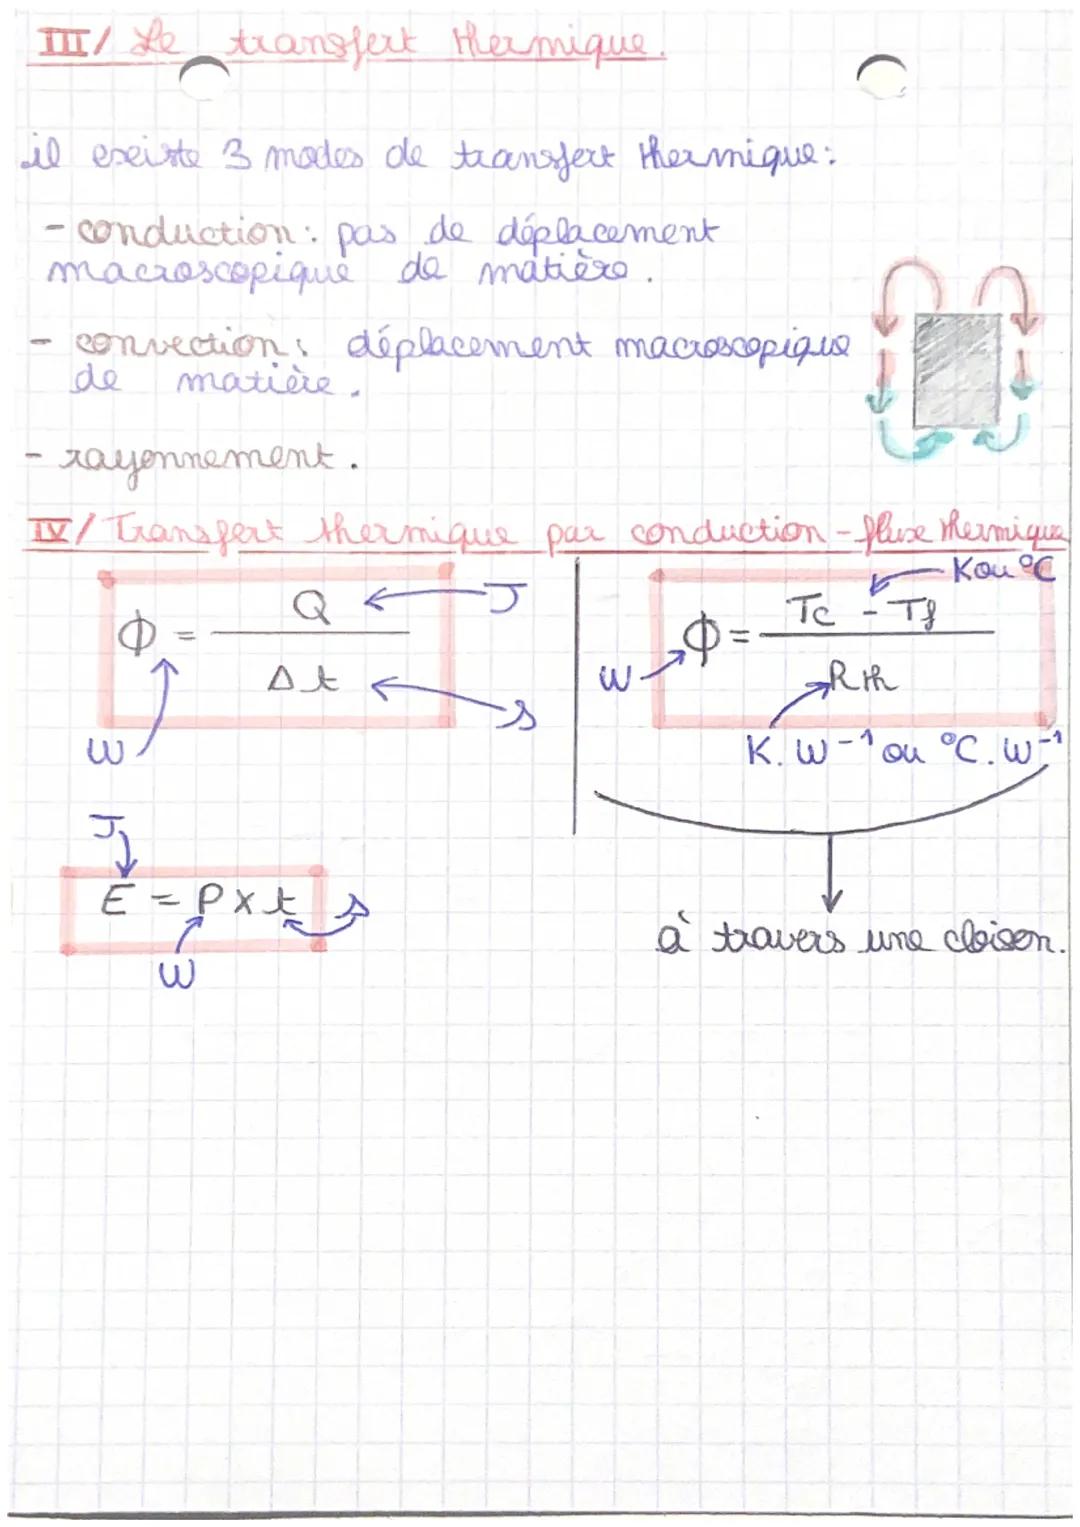 III/ Le transfert thermique.
il existe 3 modes de transfert thermique:
- conduction: pas de déplacement
macroscopique de matière.
- convection: déplacement macroscopique
de matière.
- rayonnement.
IV/ Transfert thermique par conduction - flux thermique
K ou °C
Φ = Q / Δt
J
W
s
Φ = Tc - Tf / Rth
W
K.W⁻¹ ou °C.W⁻¹
J
E = P x t
s
W
à travers une cloison.